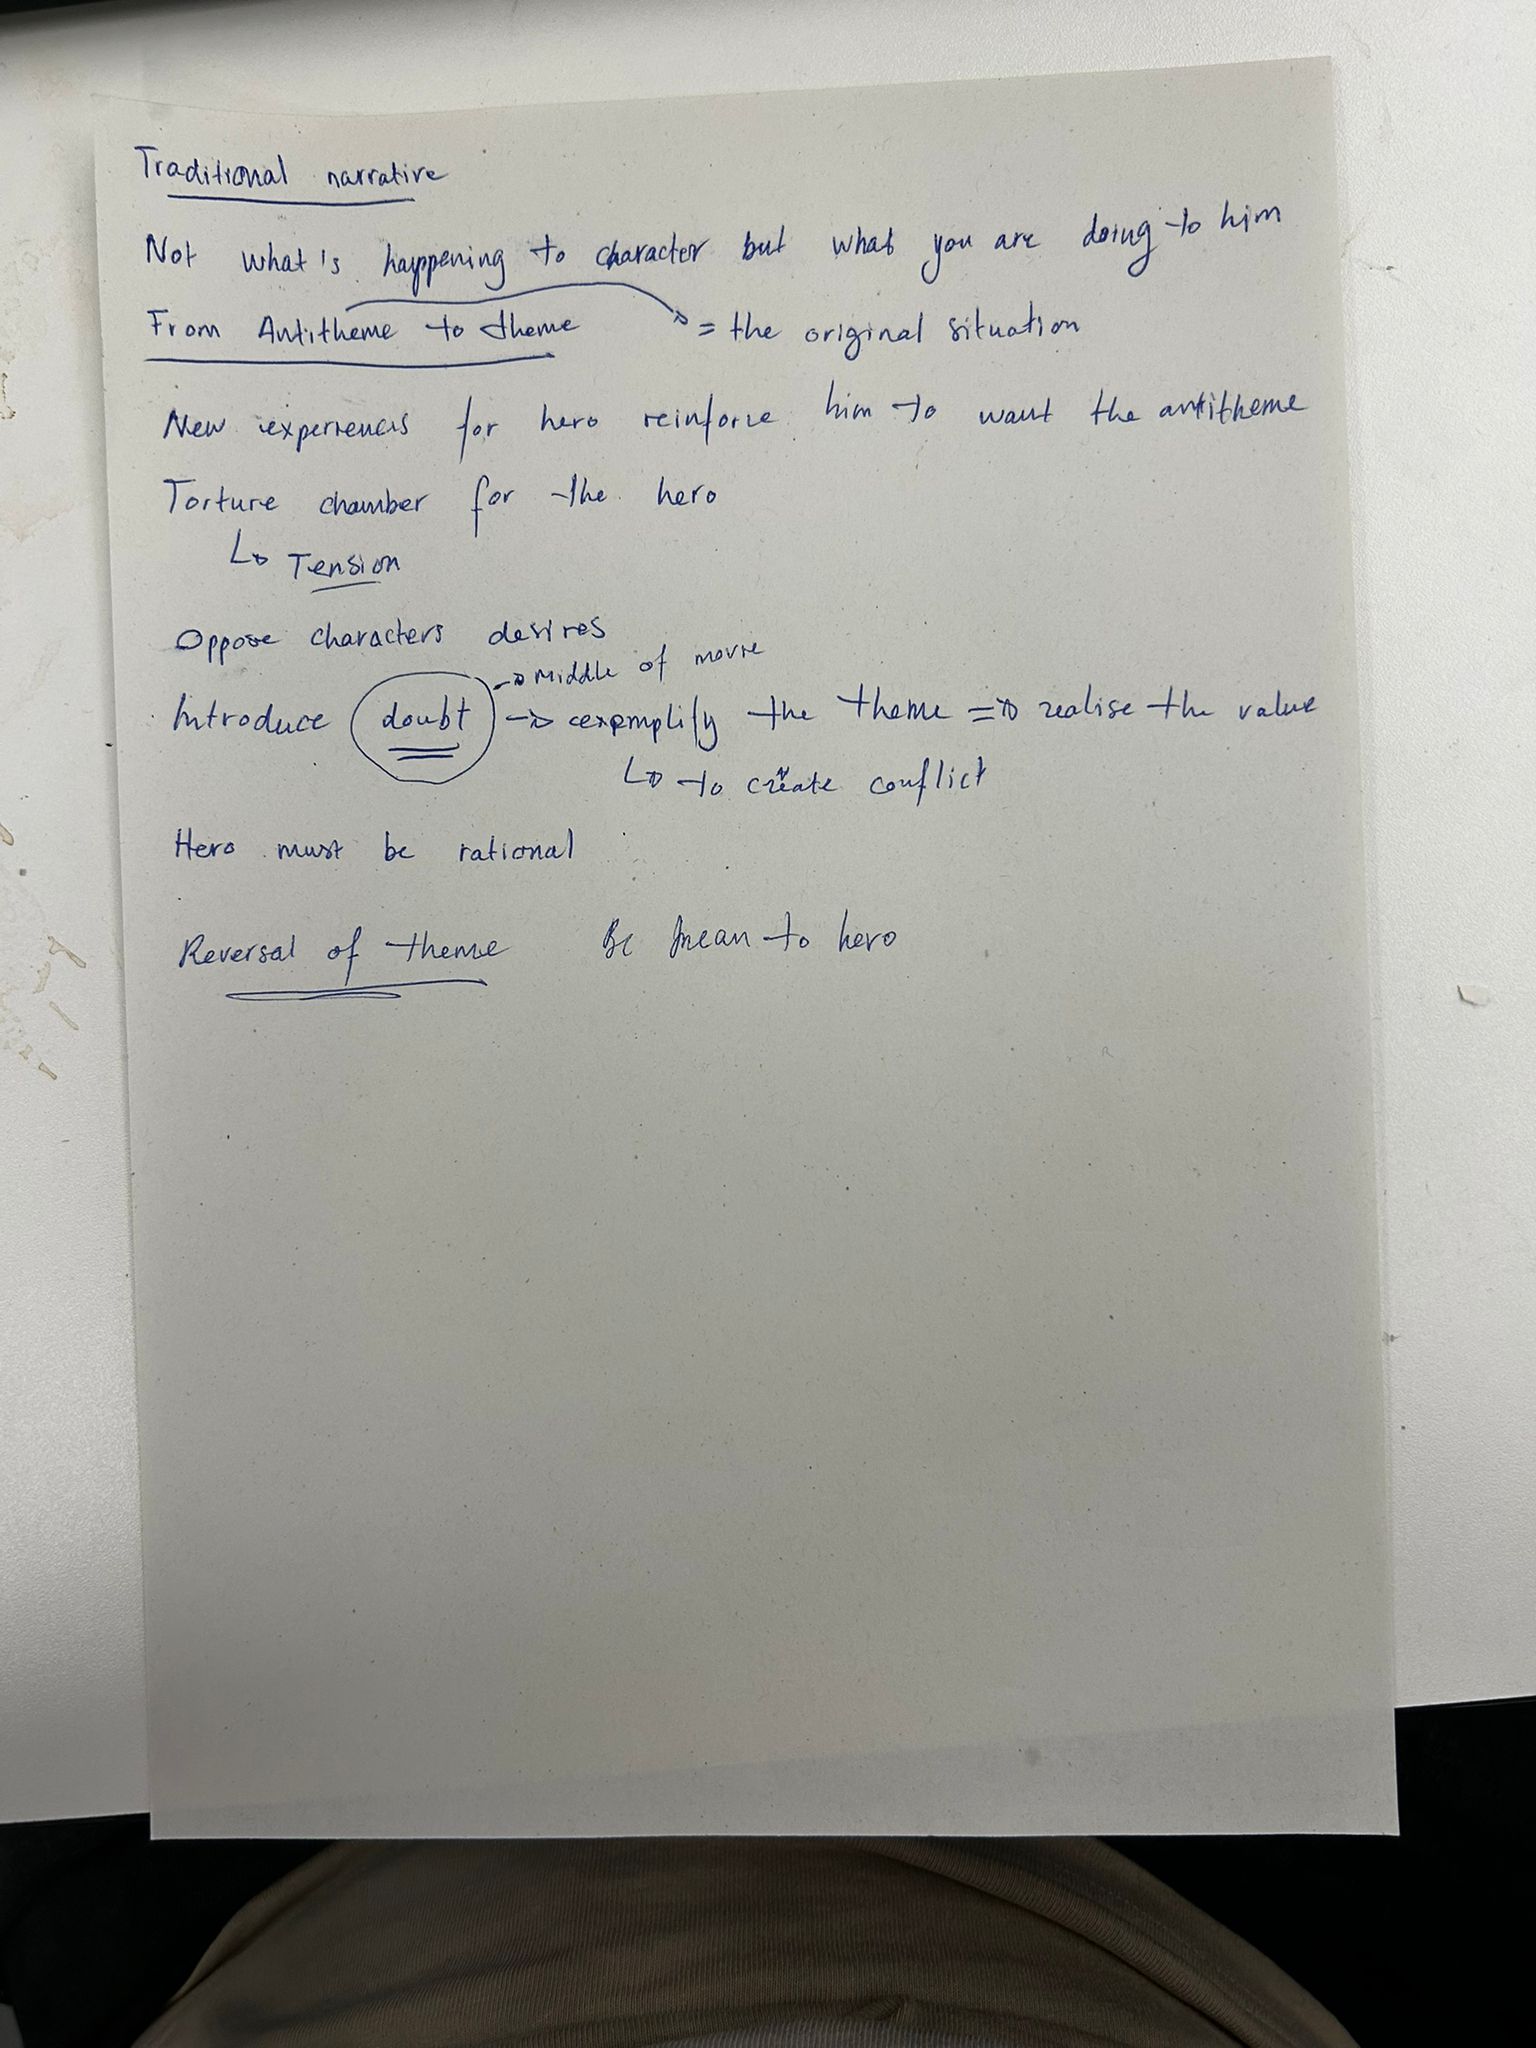 Traditional narrative
Not what's happening to character but what you are doing to him
From Antitheme to theme → = the original situation
New experiences for hero reinforce him to want the antitheme
Torture chamber for the hero
↳ Tension
Oppose characters desires
→ Middle of movie
Introduce doubt → exemplify the theme => realise the value
↳ to create conflict
Hero must be rational
Reversal of theme Be mean to hero